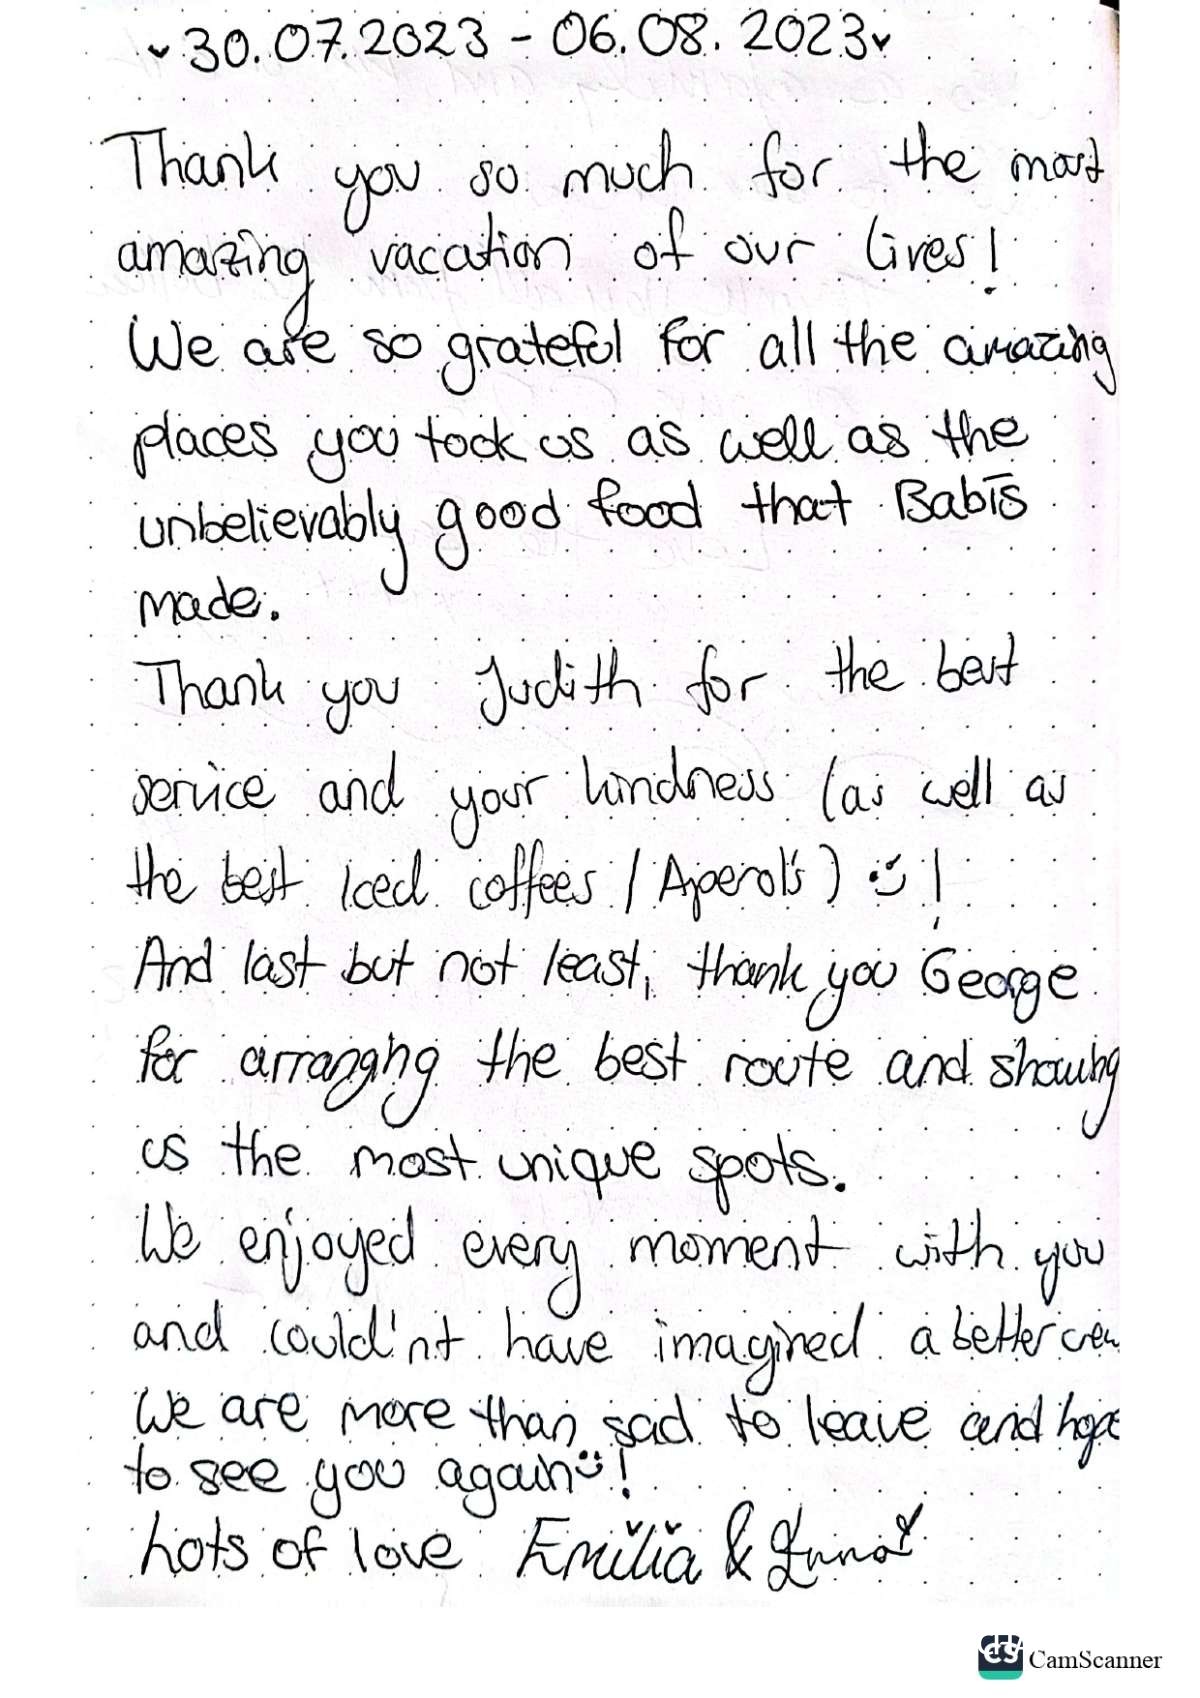 ♥30.07.2023 - 06.08.2023♥
Thank you so much for the most
amazing vacation of our lives!
We are so grateful for all the amazing
places you took us as well as the
unbelievably good food that Babis
made.
Thank you Judith for the best
service and your kindness (as well as
the best Iced coffees / Aperol's) :)!
And last but not least, thank you George
for arranging the best route and showing
us the most unique spots.
We enjoyed every moment with you
and could'nt have imagined a better crew
We are more than sad to leave and hope
to see you again :)!
hots of love Emilia &
CS CamScanner